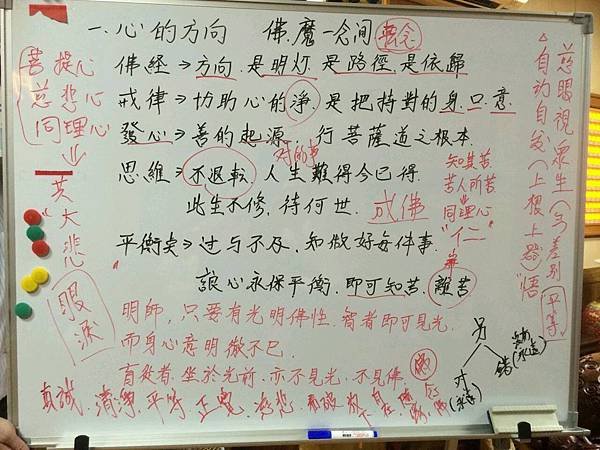 一.心的方向 佛.魔一念间 執念
佛経→方向.是明灯.是路徑.是依歸
戒律→协助心的淨.是把持對的身.口.意
發心→善的起源.行菩薩道之根本
对的事
思維→不退転 人生難得今已得
此生不修,待何世. 成佛
平衡矣→过与不及.知做好每件事.
讓心永保平衡.即可知苦.離苦
明師,只要有光明佛性.智者即可見光.
而身心意明徹不已.
盲従者.坐於光前.亦不見光,不見佛.
真誠.清淨.平等.正覺.慈悲.看破.放下.自在.隨緣.念佛
菩提心
慈悲心
同理心
英大悲
眼淚
知其苦
苦人所苦
同理心
"仁"
慈眼視眾生(勿差別 平等
自动自发(上根上器)悟